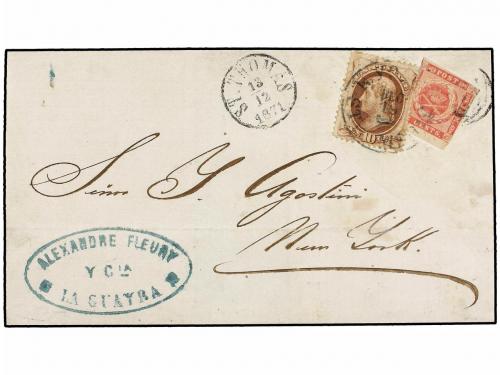 ST. THOMAS
13
12
1871
POST
CENTS
Señor J Agostini
New York.
ALEXANDRE FLEURY
Y Cia
LA GUAYRA